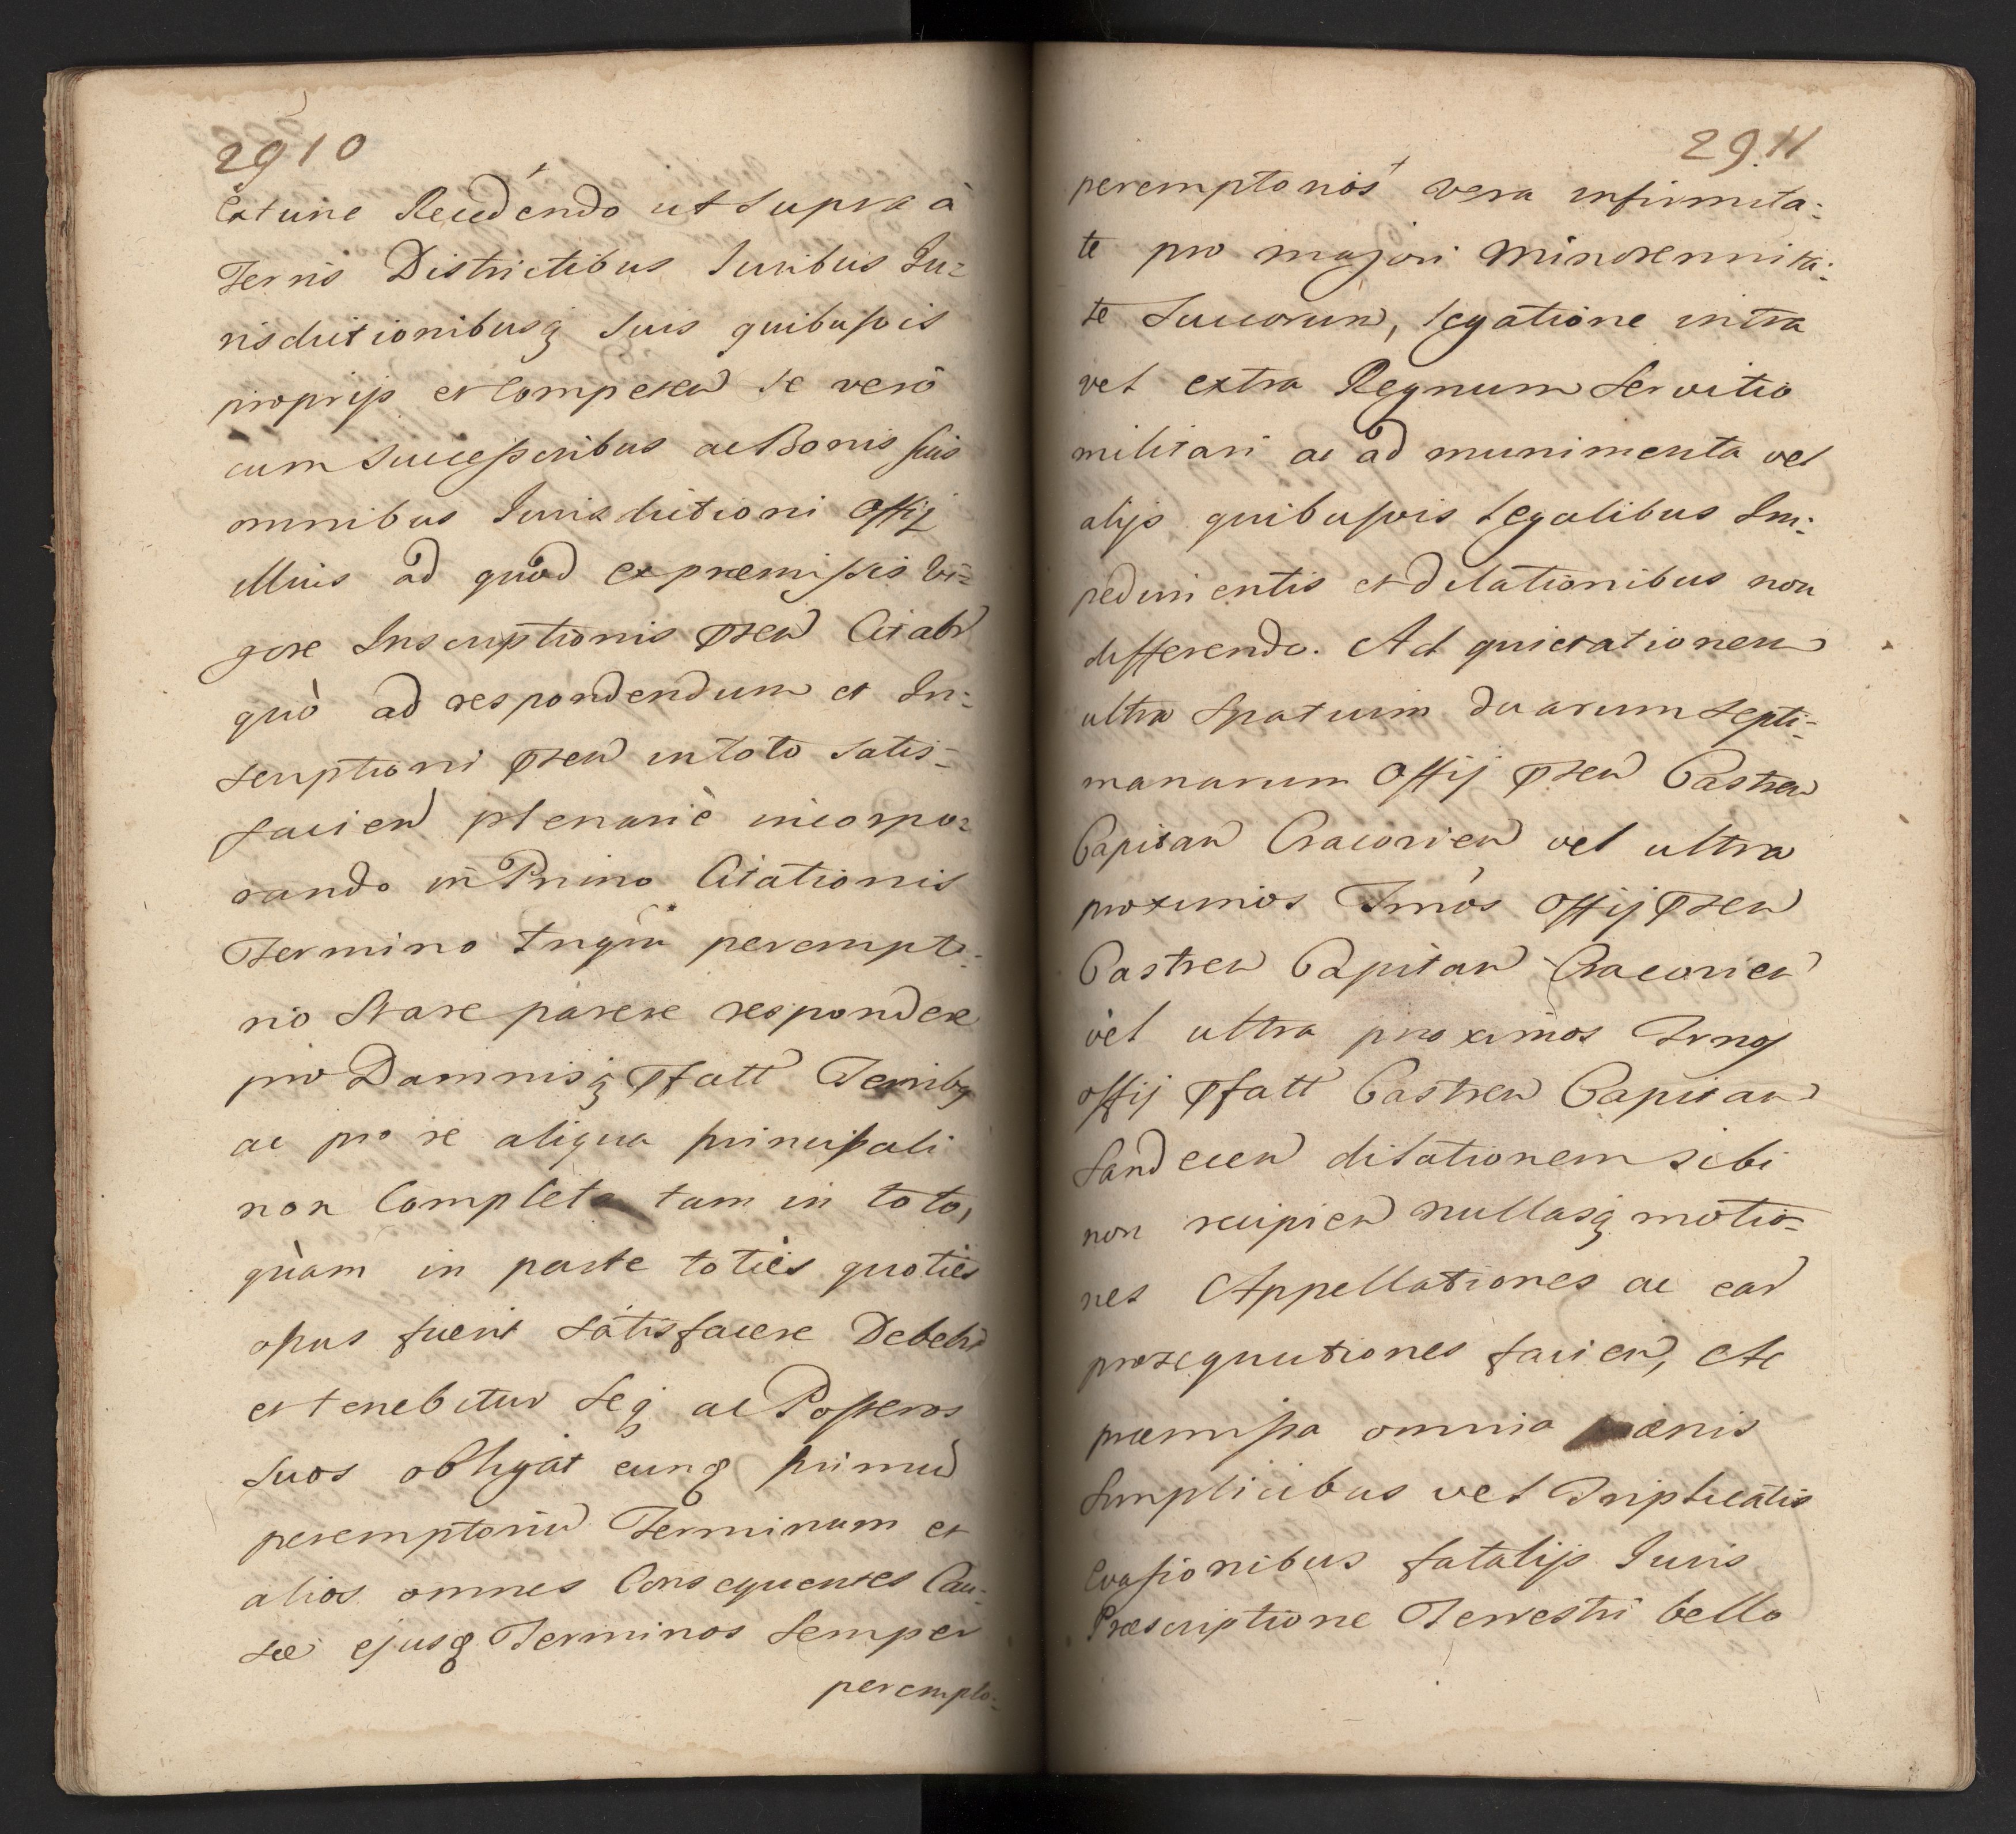 2910
Extune Recedendo ut Supra à
Terris Districtibus Iuribus Iu=
risdictionibusq suis quibusvis
proprijs et Competen se verò
cum Successoribus ac Bonis suis
omnibus Jurisdictioni Offij
illius ad quod ex præmissis Vi=
gore Inscriptionis pñtn Citabr
quò ad respondendum et In=
scriptioni pñtn in toto satis=
facien plenariè incorpo=
rando in Primo Citationis
Termino tnqm perempto=
rio Stare parere respondere
pro Damnisq pfatt Terribq
ac pro re aliqua principali
non Completa tam in toto,
quàm in parte totiès quotiès
opus fuerit satisfacere Debebit
et tenebitur Seq ac Posteros
suos obligat eunq primum
peremptoriu Terminum et
alios omnes Consequentes Cau=
sæ ejusq Terminos semper
perempto=
2911
peremptorios vera infirmita=
te pro majori Minorennita=
te Succorum, legatione intra
vel extra Regnum Servitio
militari ac ad munimenta vel
alijs quibusvis legalibus Im=
pedimentis et dilationibus non
differendo. Ad quietationem
ultra Spatium duarum Septi=
manarum Offij pñtn Castren
Capitan Cracovien vel ultra
proximos Tmos Offij pñtn
Castren Capitan Cracovien
vel ultra proximos Trmos
Offij pfatt Castren Capitan
Sandecen dilationem sibi
non recipien nullasq motio=
nes Appellationes ac ear
prosequutiones facien, Ac
præmissa omnia pænis
Simplicibus vel Triplicatis
Evasionibus fatalijs Iuris
Præscriptione Terrestri bello